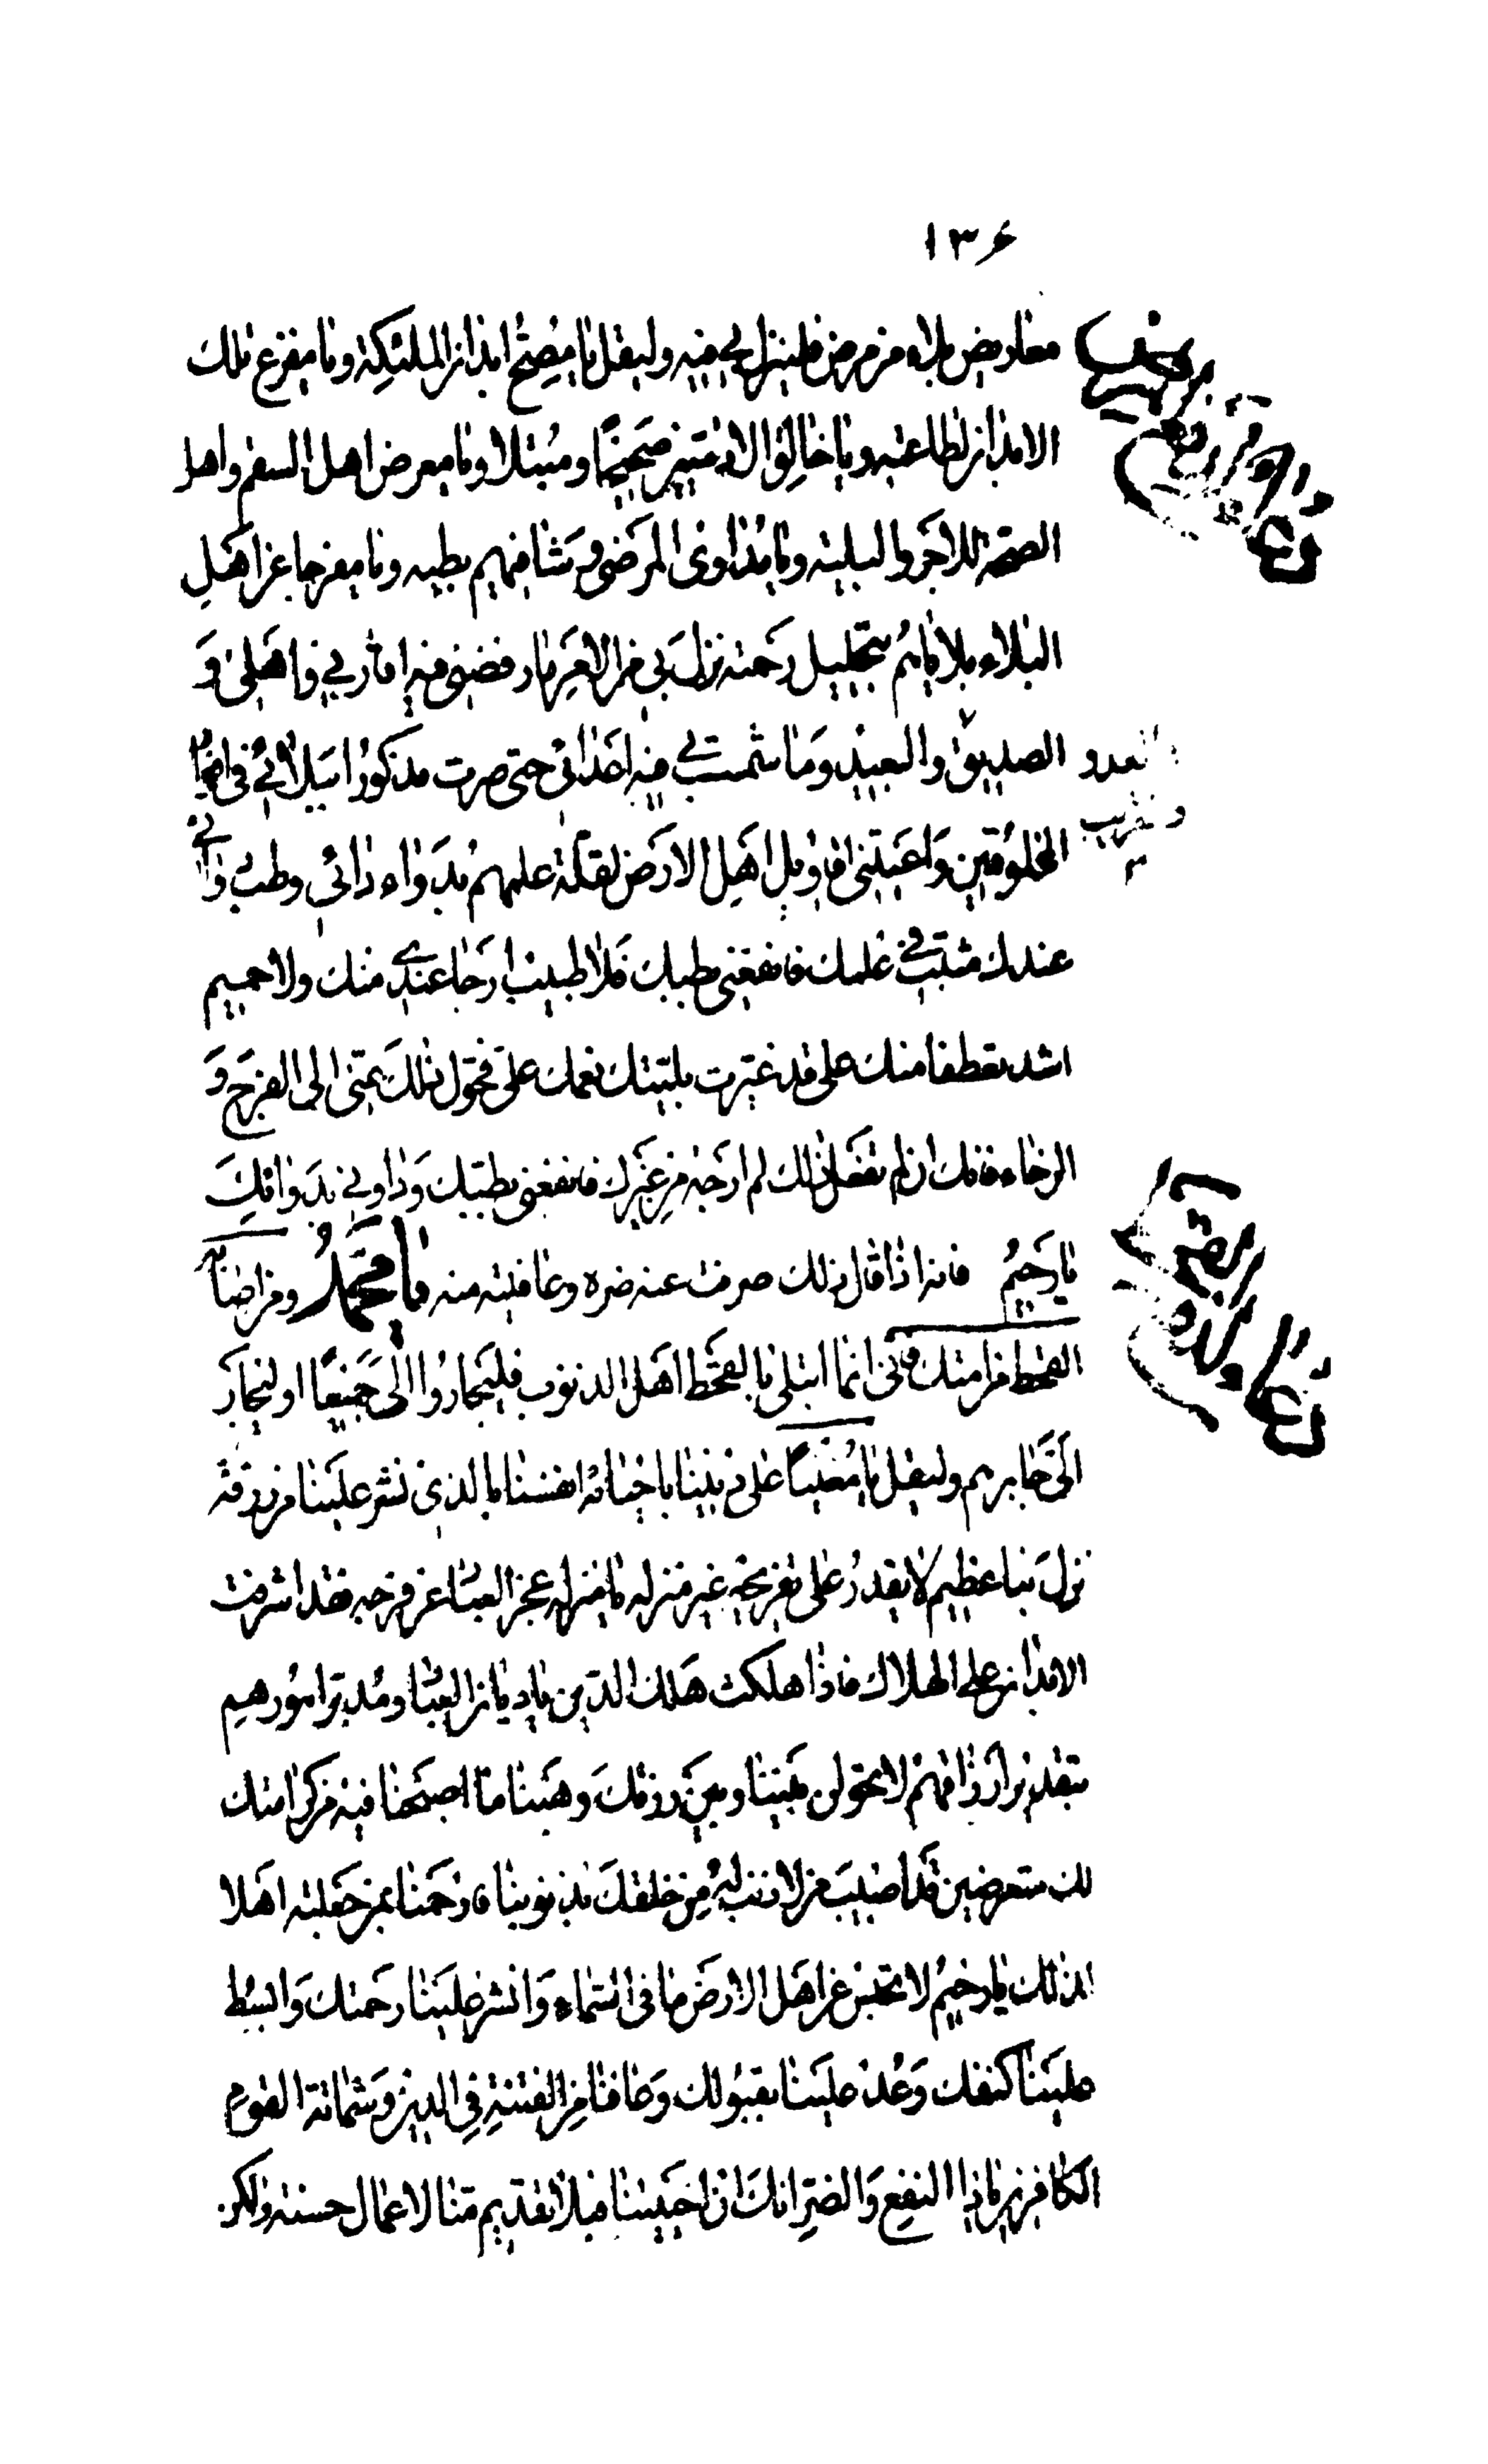 ١٣۶
معاريض بلاء من مرض فلينزل بي فيه وليقل يا مصح ابدان الملئكة ويا مفرغ تلك
الابدان لطاعته ويا خالق الادميين صحيحا ومبتلا ويا معرض اهل السقم واهل
الصحة للاجر والبلية ويا مداوي المرضى وشافيهم بطبه ويا مفرجا عن اهل
البلاء بلاياهم بتجليل رحمته نزل بي من الامر ما رفضني فيه اقاربي واهلي و
الصديق والبعيد وما شمت بي فيه اعدائي حتى صرت مذكورا ببلائي في افواه
المخلوقين واعيتني اقاويل اهل الارض لقلة علمهم بدواء دائي وطب دائي
عندك مثبت في علمك فانفعني بطبك فلا طبيب ارجا عندي منك ولا حميم
اشد تعطفا منك علي قد غيرت بليتك نعمك علي فحول ذلك عني الى الفرج و
الرخاء فانك ان لم تفعل ذلك لم ارجه من غيرك فانفعني بطبك وداوني بدوائك
يا رحيم فانه اذا قال ذلك صرفت عنه ضره وعافيته منه يا محمد ومن اصابه
القحط من امتك فاني انما ابتلي بالقحط اهل الذنوب فليجاروا الي جميعا او ليجار
الي جابرهم وليقل يا معيننا على ديننا باحيائه انفسنا بالذي نشر علينا من رزقه
نزل بنا عظيم لا يقدر على تفريجه غير منزله يا منزله عجز العباد عن فرجه فقد اشرفت
الابدان على الهلاك فاذا هلكت هلك الدين يا ديان العباد ومدبر امورهم
بتقدير ارزاقهم لا تحولن بيننا وبين رزقك وهبنا ما اصبحنا فيه من كرامتك
لك متعرضين قد اصيب من لا ذنب له من خلقك بذنوبنا فارحمنا بمن جعلته اهلا
لذلك يا رحيم لا تحبس عن اهل الارض ما في السماء وانشر علينا رحمتك وابسط
علينا كنفك وعد علينا بقبولك وعافنا من الفتنة في الدين وشماتة القوم
الكافرين يا ذا النفع والضر انك ان احييتنا فبلا تقديم منا لاعمال حسنة ولكن
والعدو
والقريب